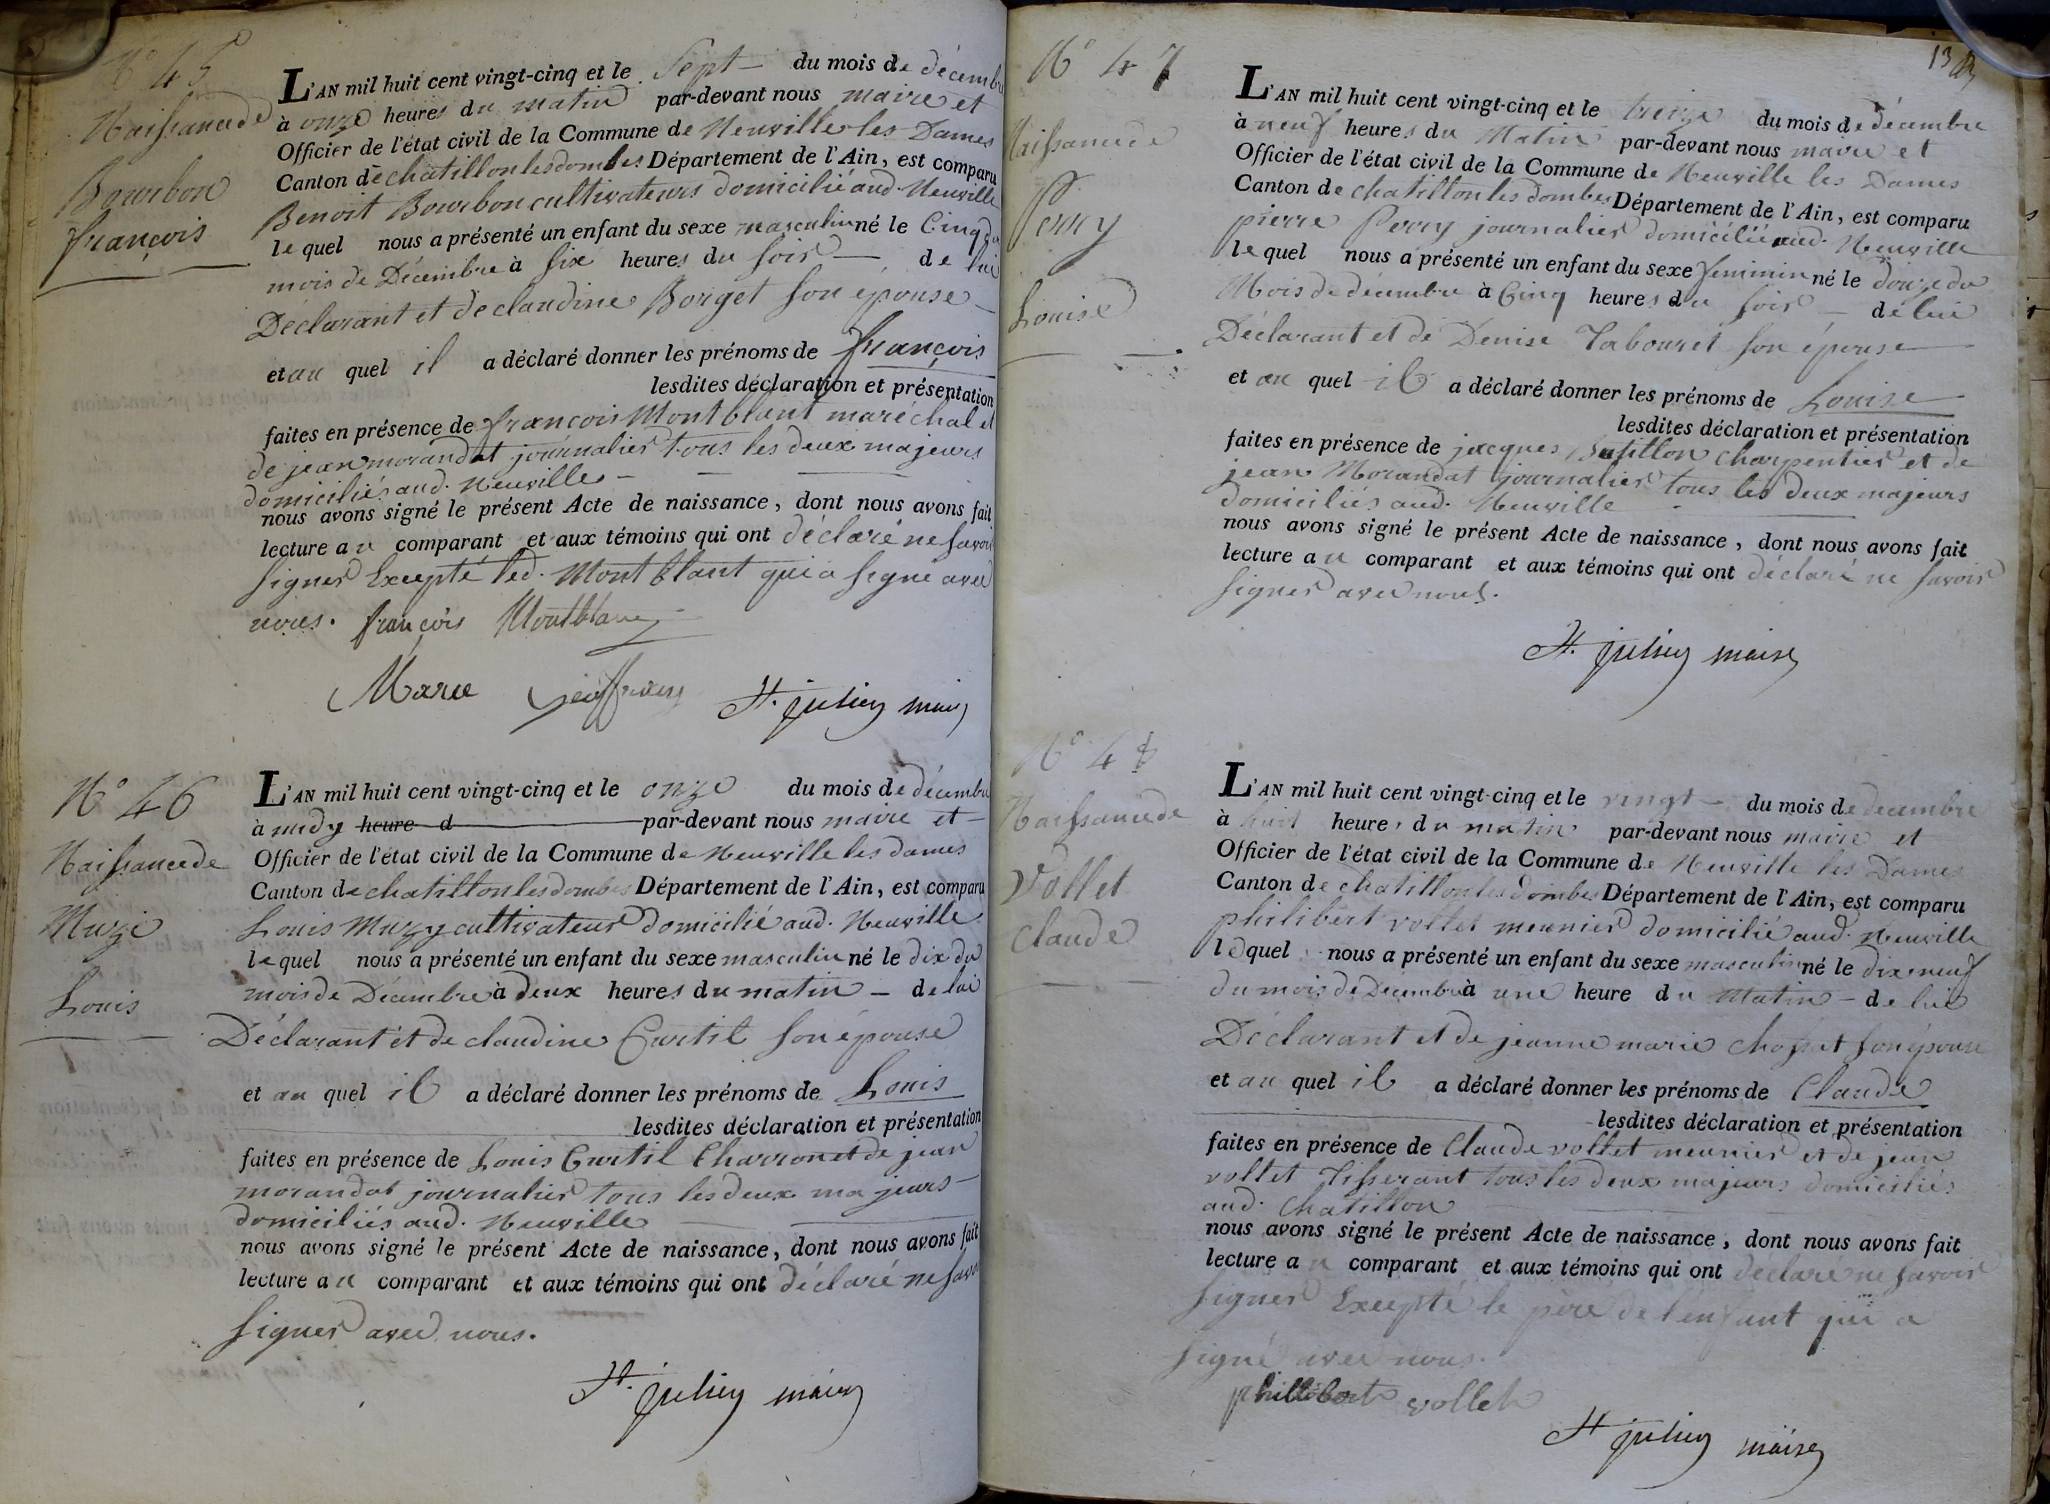 N° 45
Naissance de
Bourbon
françois
L'AN mil huit cent vingt-cinq et le Sept du mois de décembre
à onze heures du matin par-devant nous maire et
Officier de l'état civil de la Commune de Neuville les Dames
Canton de chatillon les dombes Département de l'Ain, est comparu
Benoit Bourbon cultivateur domicilié aud. Neuville
le quel nous a présenté un enfant du sexe masculin né le Cinq du
mois de Décembre à six heures du soir de lui
Déclarant et de claudine Borget son épouse
et au quel il a déclaré donner les prénoms de françois
lesdites déclaration et présentation
faites en présence de françois Montblant maréchal et
de jean morandat journalier tous les deux majeurs
domiciliés aud. Neuville
nous avons signé le présent Acte de naissance, dont nous avons fait
lecture au comparant et aux témoins qui ont déclaré ne savoir
signer Excepté led. Montblant qui a signé avec
nous. françois Montblanc
Marie St. julien maire
N° 46
Naissance de
Muzi
Louis
L'AN mil huit cent vingt-cinq et le onze du mois de décembre
à midy heure d par-devant nous maire et
Officier de l'état civil de la Commune de Neuville les dames
Canton de chatillon les dombes Département de l'Ain, est comparu
Louis Muzy cultivateur domicilié aud. Neuville
le quel nous a présenté un enfant du sexe masculin né le dix du
mois de Décembre à deux heures du matin de lui
Déclarant et de claudine Curtil son épouse
et au quel il a déclaré donner les prénoms de Louis
lesdites déclaration et présentation
faites en présence de Louis Curtil Charron et de jean
morandat journalier tous les deux majeurs
domiciliés aud. Neuville
nous avons signé le présent Acte de naissance, dont nous avons fait
lecture au comparant et aux témoins qui ont déclaré ne savoir
signer avec nous.
St. julien maire
13
N° 47
Naissance de
Perry
Louise
L'AN mil huit cent vingt-cinq et le treize du mois de décembre
à neuf heures du Matin par-devant nous maire et
Officier de l'état civil de la Commune de Neuville les Dames
Canton de chatillon les dombes Département de l'Ain, est comparu
pierre Perry journalier domicilié aud. Neuville
le quel nous a présenté un enfant du sexe feminin né le douze du
Mois de décembre à Cinq heures du soir de lui
Déclarant et de Denise Tabouret son épouse
et au quel il a déclaré donner les prénoms de Louise
lesdites déclaration et présentation
faites en présence de jacques Butillon Charpentier et de
jean Morandat journalier tous les deux majeurs
domiciliés aud. Neuville
nous avons signé le présent Acte de naissance, dont nous avons fait
lecture au comparant et aux témoins qui ont déclaré ne savoir
signer avec nous.
St. julien maire
N° 48
Naissance de
Vollet
Claude
L'AN mil huit cent vingt-cinq et le vingt du mois de décembre
à huit heures du matin par-devant nous maire et
Officier de l'état civil de la Commune de Neuville les Dames
Canton de chatillon les dombes Département de l'Ain, est comparu
philibert vollet meunier domicilié aud. Neuville
lequel nous a présenté un enfant du sexe masculin né le dix neuf
du mois de Decembre à une heure du Matin de lui
Déclarant et de jeanne marie chossat son épouse
et au quel il a déclaré donner les prénoms de Claude
lesdites déclaration et présentation
faites en présence de Claude vollet meunier et de jean
vollet Tisserant tous les deux majeurs domiciliés
aud. Chatillon
nous avons signé le présent Acte de naissance, dont nous avons fait
lecture au comparant et aux témoins qui ont déclaré ne savoir
signer Excepté le père de l'enfant qui a
signé avec nous.
phillibert vollet
St julien maire